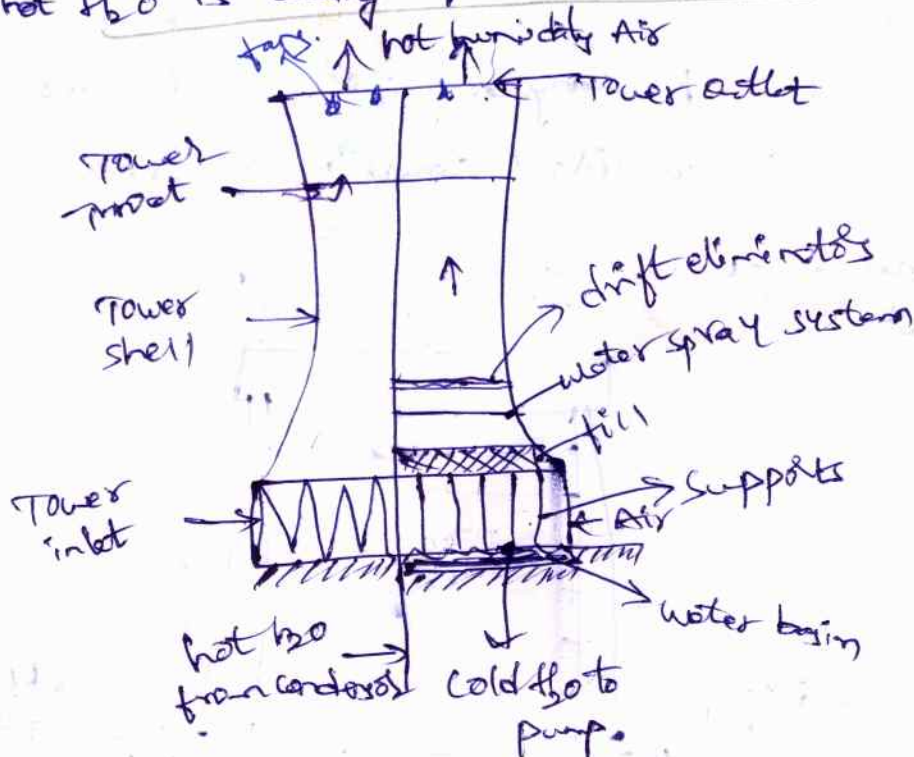 hot H2O is
hot humidity Air
Tower outlet
Tower
Tower
shell
drift eliminators
water spray system
fill
Supports
Air
Tower
inlet
water basin
hot H2O
from condensor
Cold H2O to
pump.